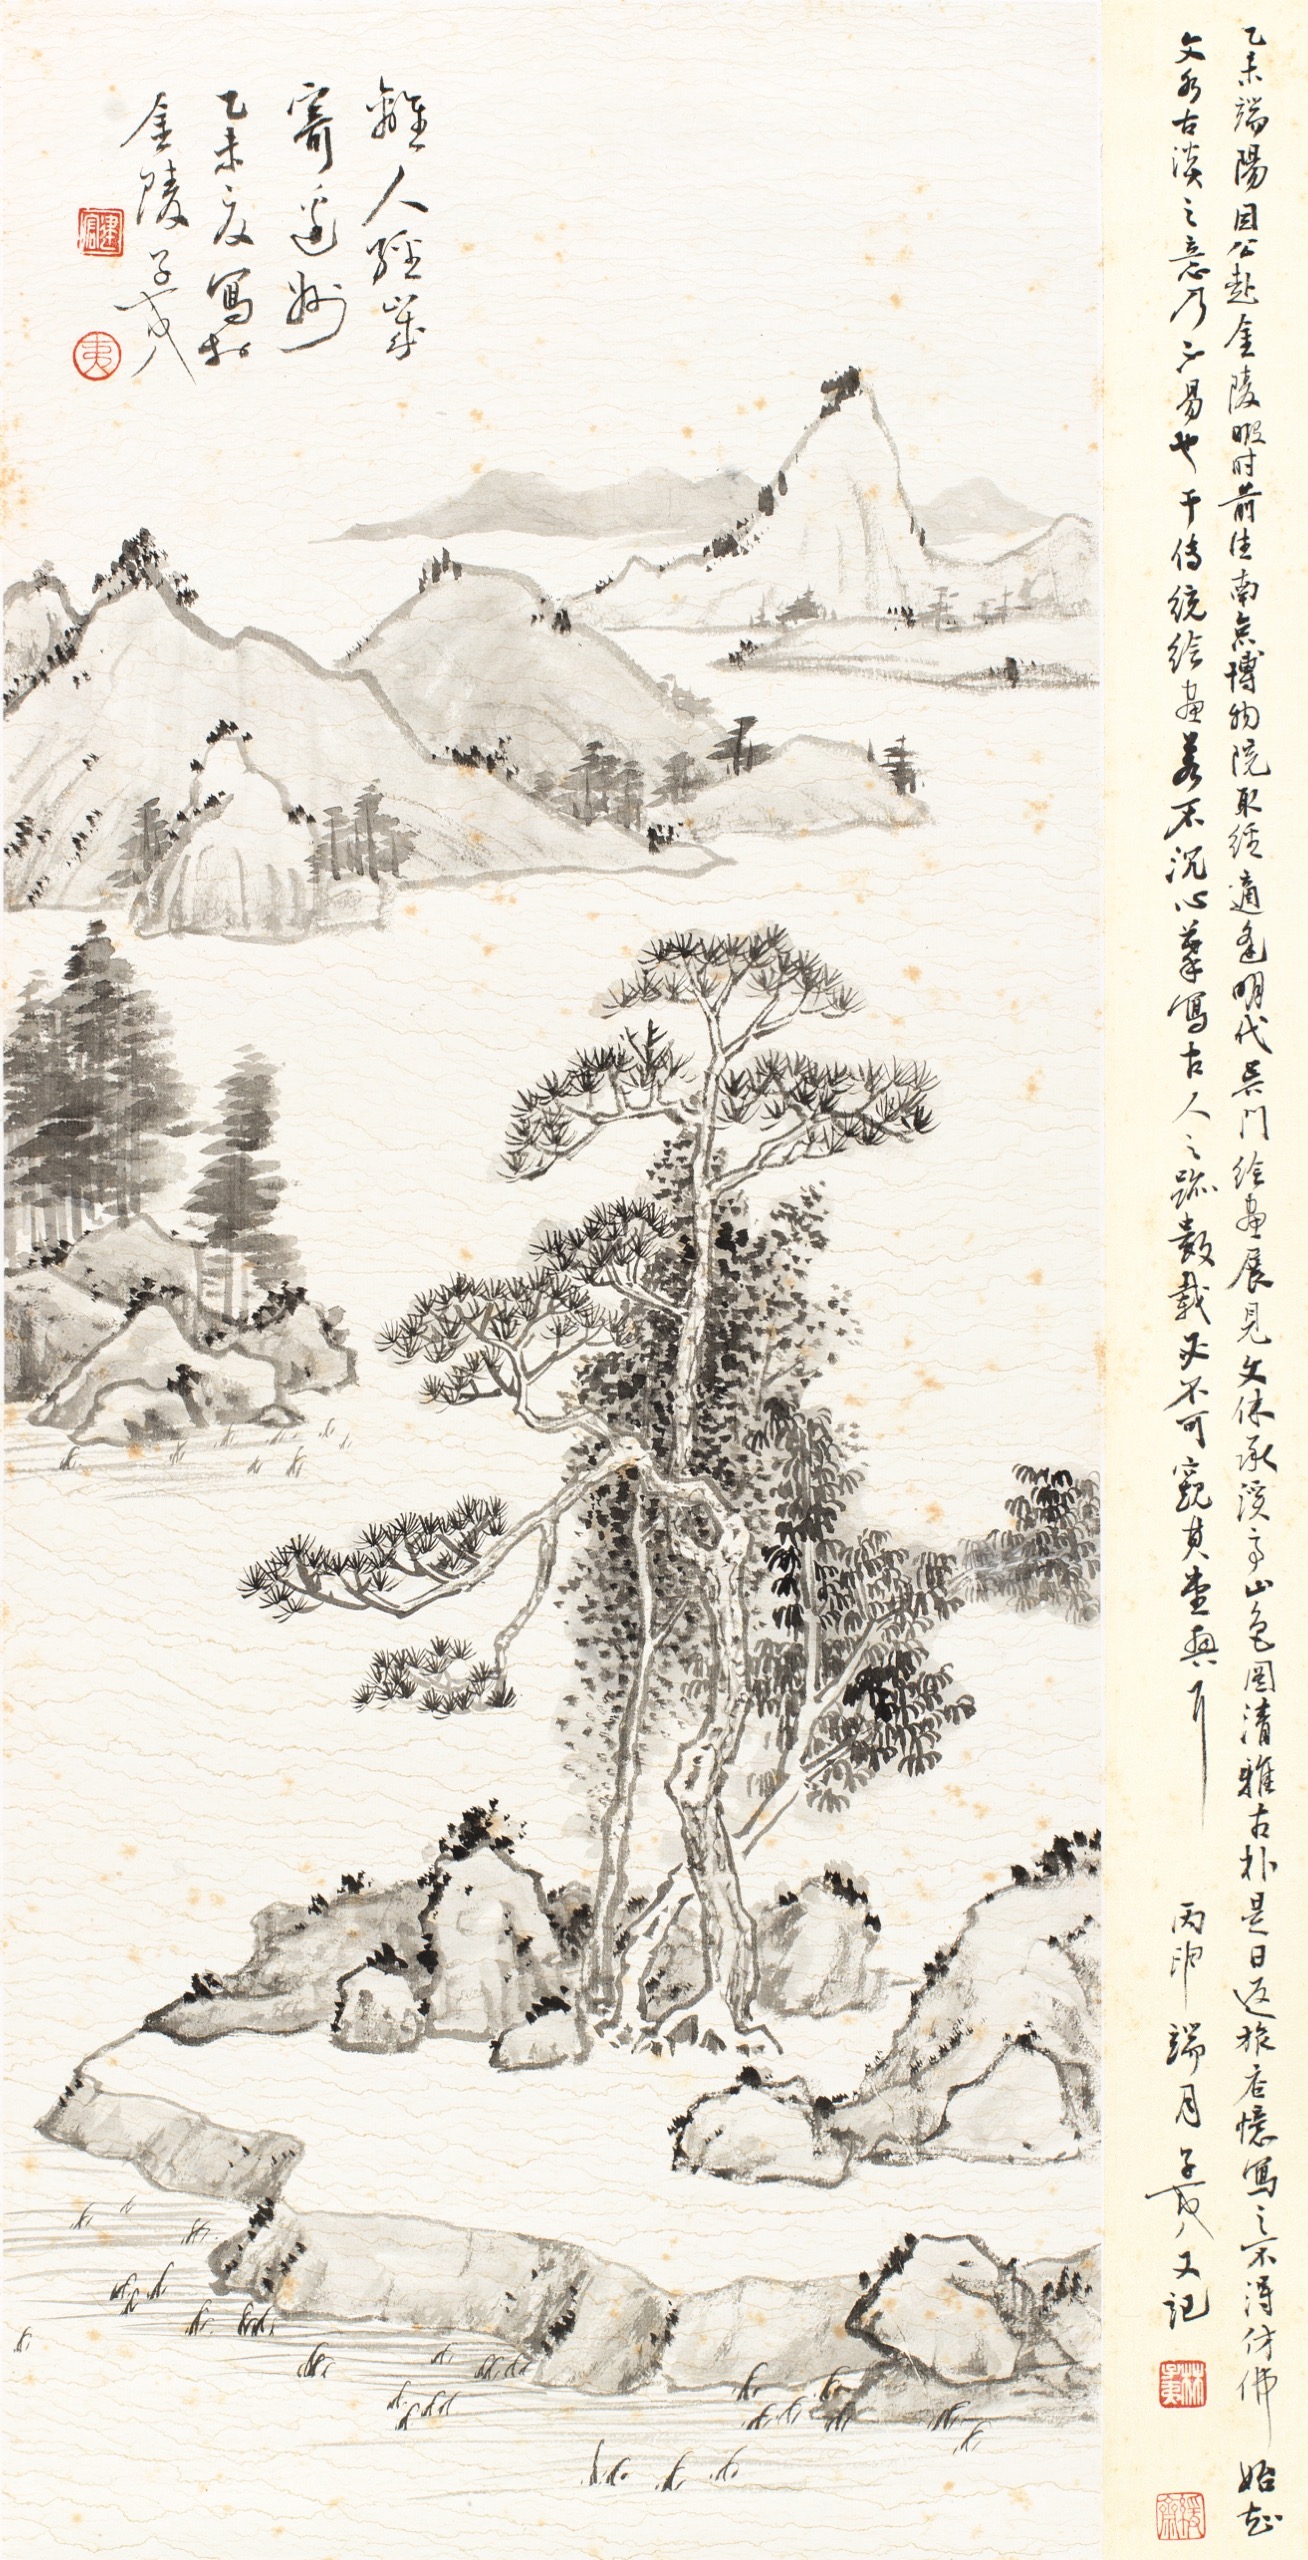 乙未端陽因公赴金陵暇时前往南京博物院取经適逢明代吴门绘画展見文休承溪亭山色图清雅古朴是日返旅店憶寫之不得仿佛始知
文氏古淡之意乃不易也于传统绘画若不沉心摹寫古人之跡數載必不可窺其堂奥耳
丙申端月子夷又记
林子夷
離人经歲
寄遥
乙未夏寫於
金陵子夷
夷